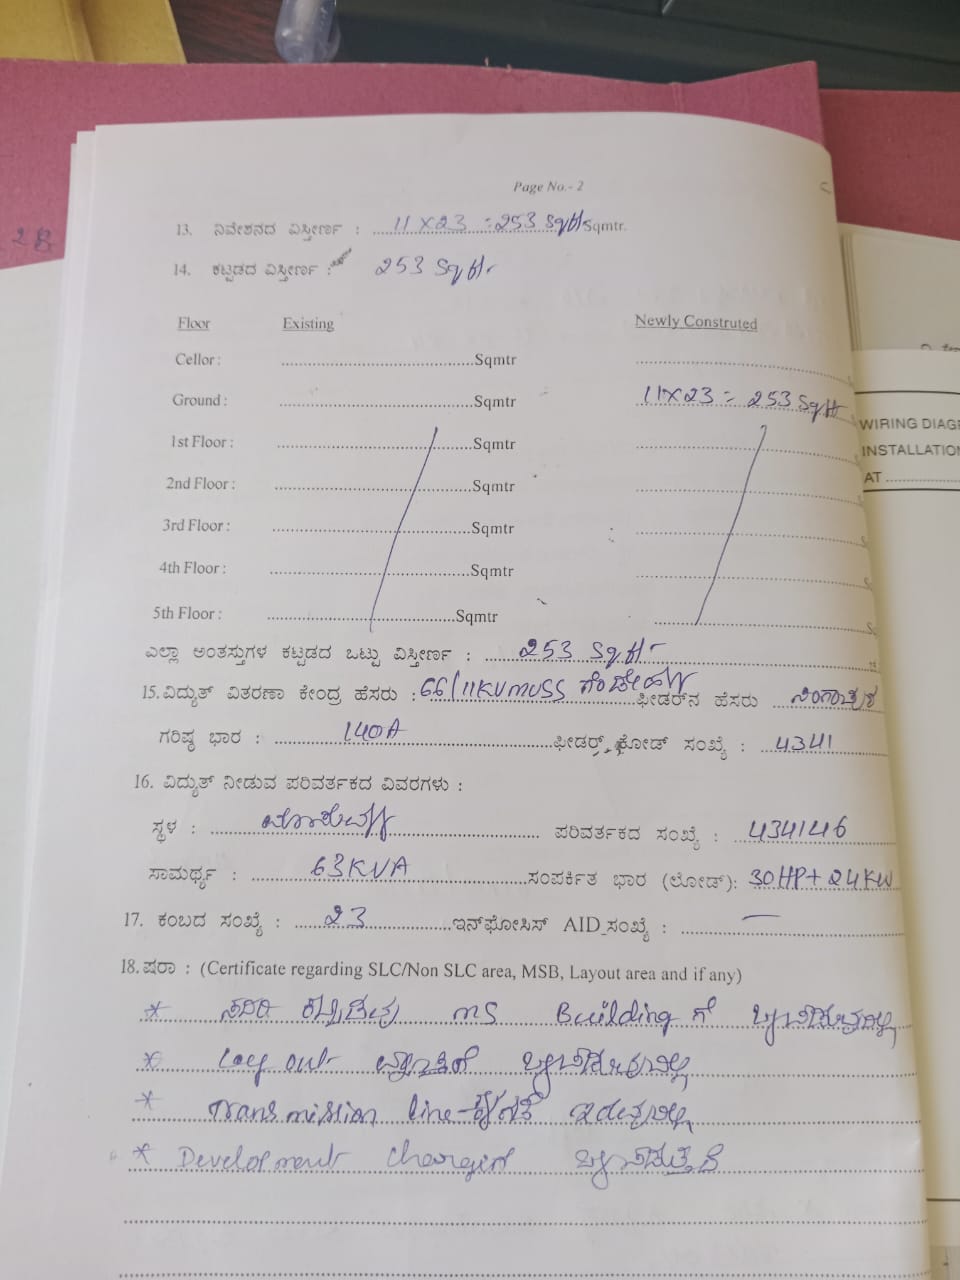 Page No.- 2
13. ನಿವೇಶನದ ವಿಸ್ತೀರ್ಣ : 11 X 23 = 253 Sqft Sqmtr.
14. ಕಟ್ಟಡದ ವಿಸ್ತೀರ್ಣ : 253 Sqft
Floor Existing Newly Construted
Cellor : Sqmtr
Ground : Sqmtr 11X23 = 253 Sqft
1st Floor : Sqmtr
2nd Floor : Sqmtr
3rd Floor : Sqmtr
4th Floor : Sqmtr
5th Floor : Sqmtr
ಎಲ್ಲಾ ಅಂತಸ್ತುಗಳ ಕಟ್ಟಡದ ಒಟ್ಟು ವಿಸ್ತೀರ್ಣ : 253 Sqft
15. ವಿದ್ಯುತ್ ವಿತರಣಾ ಕೇಂದ್ರ ಹೆಸರು : 66/11KV MUSS ಫೀಡರ್‌ನ ಹೆಸರು
ಗರಿಷ್ಠ ಭಾರ : 140A ಫೀಡರ್ ಕೋಡ್ ಸಂಖ್ಯೆ : 4341
16. ವಿದ್ಯುತ್ ನೀಡುವ ಪರಿವರ್ತಕದ ವಿವರಗಳು :
ಸ್ಥಳ : ಪರಿವರ್ತಕದ ಸಂಖ್ಯೆ : 4341146
ಸಾಮರ್ಥ್ಯ : 63KVA ಸಂಪರ್ಕಿತ ಭಾರ (ಲೋಡ್): 30HP+24KW
17. ಕಂಬದ ಸಂಖ್ಯೆ : 23 ಇನ್‌ಫೋಸಿಸ್ AID ಸಂಖ್ಯೆ : —
18. ಷರಾ : (Certificate regarding SLC/Non SLC area, MSB, Layout area and if any)
* ಸದರಿ ಕಟ್ಟಡವು MS Building ಗೆ ಒಳಪಡುವುದಿಲ್ಲ
* Lay out ವ್ಯಾಪ್ತಿಗೆ ಒಳಪಡುವುದಿಲ್ಲ
* Transmission line ಕೆಳಗಡೆ ಇರುವುದಿಲ್ಲ
* Development chargesಗೆ ಒಳಪಡುತ್ತದೆ
WIRING DIAG
INSTALLATION
AT